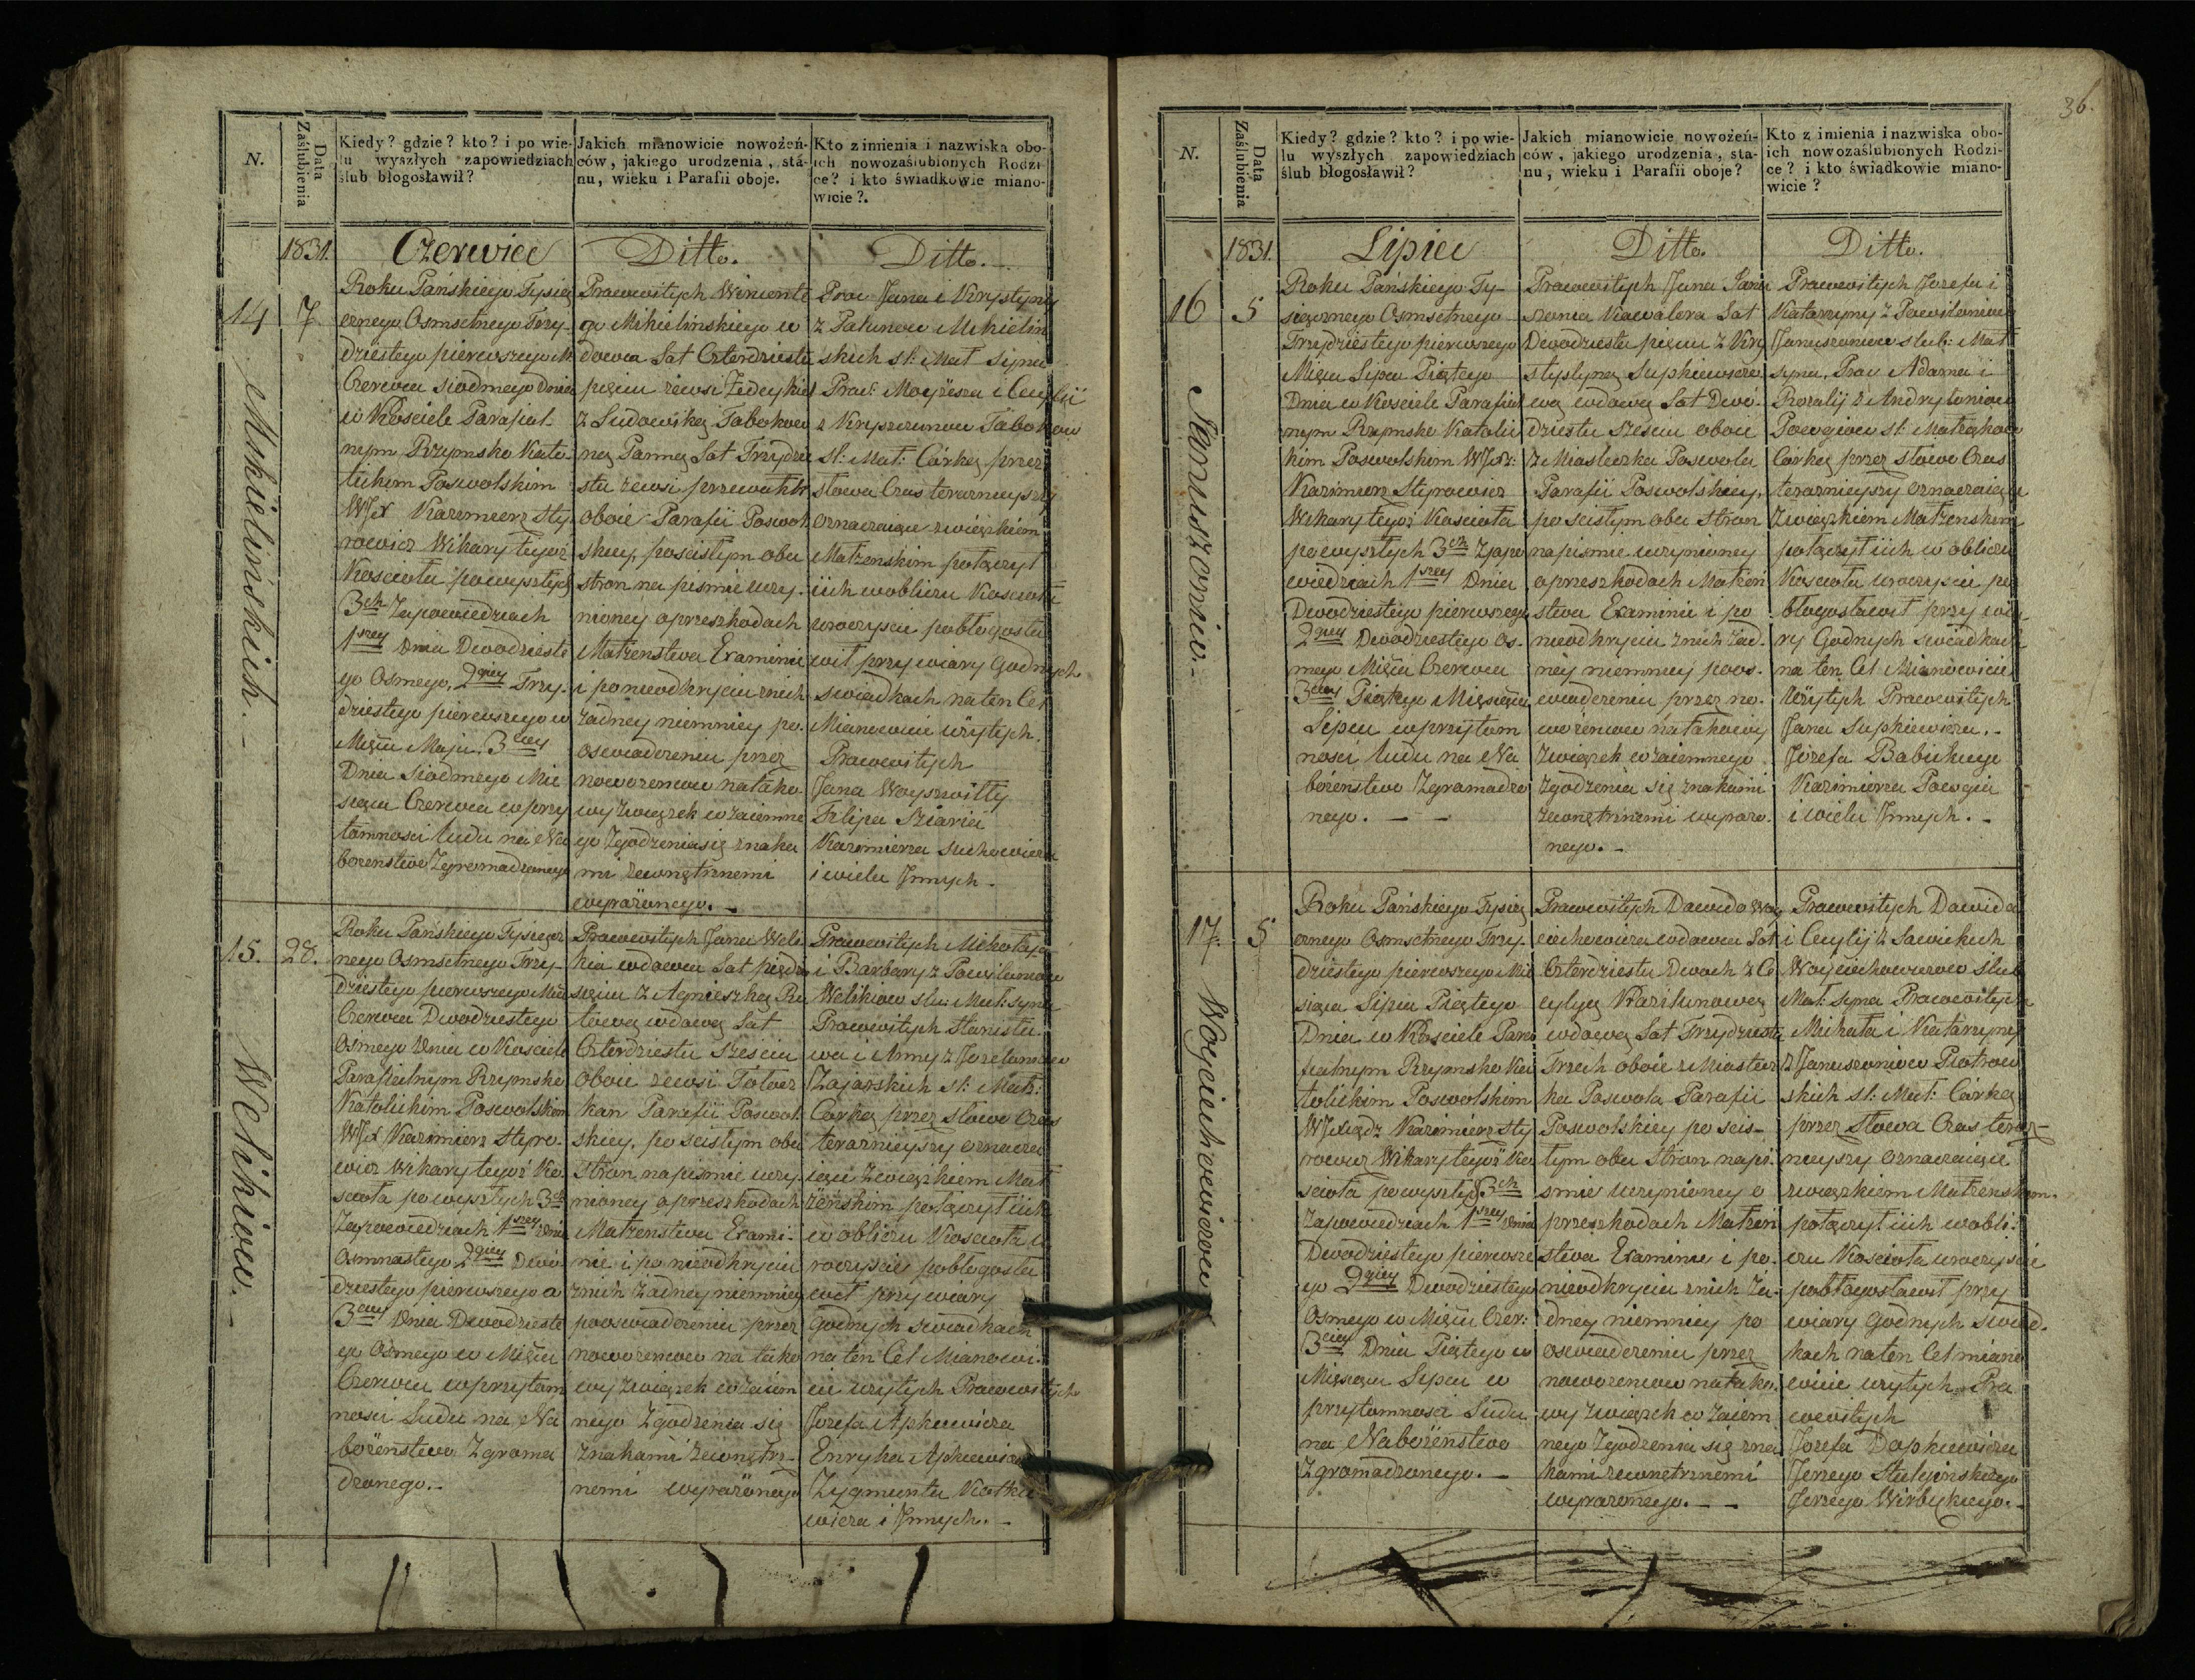 N.
Data Zaślubienia
Kiedy? gdzie? kto? i po wie-
lu wyszłych zapowiedziach
ślub błogosławił?
Jakich mianowicie nowożeń-
ców, jakiego urodzenia, stá-
nu, wieku i Parafii oboje.
Kto z imienia i nazwiska obo-
ich nowozaślubionych Rodzi-
ce? i kto świadkowie miano-
wicie?.
1831.
Czerwiec
Ditto.
Ditto.
14
7.
Mikielińskich.
Roku Pańskiego Tysiąc
cznego Osmsetnego Trzy-
dziestego pierwszego M
Czerwca siodmego Dnia
w Kościele Parafial-
nym Rzymsko Kato-
lickim Poswolskim
WJX Kazimierz Sty
rowicz Wikary tegoż
Koscioła po wyszłych
3ch Zapowiedziach
1szey Dnia Dwodzieste
go Osmego, 2giey Trzy-
dziestego pierwszego w
Mścu Maju. 3ciey
Dnia Siodmego Mie
siąca Czerwca w przy
tomnosci ludu na Na
bożenstwo Zgromadzonego
Prawowitych Wincente
go Mikielinskiego w
dowca Lat Czterdziestu
pięciu zewsi Zedeykiel
z Ludowiką Tabokow
ną Panną Lat Trzydzie
stu zewsi
oboie Parafii Poswol
skiey, po scisłym obu
stron na pismie uczy-
nioney o przeszkodach
Matżenstwa Examinie
i po nieodkryciu znich
żadney niemniey po-
oswiadczeniu przez
nowożencow na tako
wy związek wzaiemne
go Zgodzenia się znaka
mi zewnętrznemi
wyrażonego.
Praw Jana i Krystyny
z Patunow Mikielin
skich sl: Mał Syna
Praw: Moyżesza i Cecylii
z Kryszczunow Tabokow
sl: Mał: Córkę przez
słowa Czas terazniejszy
oznaczaiące związkiem
Małzenskim połączył
iich w obliczu Kosciola
uroczyscie pobłogosła
wił przy wiary Godnych
swiadkach na ten Cel
Mianowicie użytych.
Prawowitych
Jana Woyszwiłły
Filipa
Kazimierza
i wielu Jnnych.
15.
28.
Welikiow.
Roku Pańskiego Tysiącz
nego Osmsetnego Trzy-
dziestego pierwszego Mca
Czerwca Dwodziestego
Osmego Dnia w Kosciele
Parafialnym Rzymsko
Katolickim Poswolskim
WJX Kazimierz Styro-
wicz Wikary tegoż Ko-
scioła po wyszłych 3ch
Zapowiedziach 1szey Dnia
Osmnastego 2giey Dwo-
dziestego pierwszego a
3ciey Dnia Dwodzieste
go Osmego w Miścu
Czerwcu w przytom
nosci Ludu na Na
bożenstwo Zgroma
dzonego.
Prawowitych Jana Weli
kia wdowca Lat pięćdzie
sięciu z Agnieszką
wdową Lat
Czterdziestu Sześciu
Oboie zewsi
Parafii Poswol
skiey, po scisłym obu
Stron na pismie uczy
nioney o przeszkodach
Matżenstwa Exami-
nie i po nieodkryciu
znich żadney niemniey
pooswiadczeniu przez
nowożencow na tako
wy związek wzaiem
nego Zgodzenia się
znakami zewnętrz-
nemi wyrażonego
Prawowitych Mikołaja
i Barbary z Powilunow
Welikiow slu: Mał: syna
Prawowitych Stanisła
wa i Anny z
Zajarskich sl: Mał:
Córkę przez Słowa Czas
terazniejszy oznacza
iące Związkiem Mał
żenskim połączył iich
w obliczu Kosciola u
roczyscie pobłogosła
wił przy wiary
Godnych swiadkach
na ten Cel Mianowi-
cie użytych Prawowitych
Jozefa Apkiewicza
Enryka Apkiewicza
Zygmunta
wicza i Jnnych.
36.
N.
Data Zaślubienia
Kiedy? gdzie? kto? i po wie-
lu wyszłych zapowiedziach
ślub błogosławił?
Jakich mianowicie nowożeń-
ców, jakiego urodzenia, sta-
nu, wieku i Parafii oboje?
Kto z imienia i nazwiska obo-
ich nowozaślubionych Rodzi-
ce? i kto świadkowie miano-
wicie?
1831.
Lipiec
Ditto.
Ditto.
16
5
Januszoniow.
Roku Pańskiego Ty-
siącznego Osmsetnego
Trzydziestego pierwszego
Mięca Lipca Piątego
Dnia w Kosciele Parafial
nym Rzymsko Katolic
kim Poswolskim WJX:
Kazimierz Styrowicz
Wikary tegoż Kosciola
po wyszłych 3ch Zapo
wiedziach 1szey Dnia
Dwodziestego pierwszego
2giey Dwodziestego Os-
mego Mięca Czerwca
3ciey Piątego Miesiąca
Lipca w przytom
nosci ludu na Na
bożenstwo Zgromadzo
nego.
Prawowitych Jana Janu
szonia Kawalera Lat
Dwodziestu pięciu z Kry
stystyną Lupkiewiczo
wą wdową Lat Dwó-
dziestu Szesciu oboie
z Miasteczka Poswola
Parafii Poswolskiey,
po scisłym obu stron
na pismie uczynioney
o przeszkodach Matżeń
stwa Examinie i po
nieodkryciu znich żad-
ney niemniey poos-
wiadczeniu przez no-
wożencow na takowy
Związek wzaiemnego
Zgodzenia się znakami
zewnętrznemi wyrażo-
nego.
Prawowitych Jozefa i
Katarzyny z Powiloniow
Januszoniow slub: Mał
syna, Praw Adama i
Rozalij z Andryloniow
Powgiow sl: Matżąkow
Córkę przez słowa Czas
terazniejszy oznaczaiące
Związkiem Matżenskim
połączył iich w obliczu
Kosciola uroczyscie po
błogosławił przy wia
ry Godnych swiadkach
na ten Cel Mianowicie
Użytych Prawowitych
Jana Lupkiewicza.
Józefa Babickiego
Kazimierza Powgia
i wielu Jnnych.
17.
5
Woyciechowiczow
Roku Pańskiego Tysiąc
cznego Osmsetnego Trzy-
dziestego pierwszego Mie
siąca Lipca Piątego
Dnia w Kosciele Para
fialnym Rzymsko Ka
tolickim Poswolskim
WJXiądz Kazimierz Sty
rowicz Wikary tegoż Ko
sciola po wyszłych 3ch
Zapowiedziach 1szey Dnia
Dwodziestego pierwsze
go 2giey Dwodziestego
Osmego w Mięcu Czer:
3ciey Dnia Piątego w
Miesiącu Lipcu w
przytomnosci Ludu
na Nabożeństwo
Zgromadzonego.
Prawowitych Dawida Woy
ciechowicza wdowca Lat
Czterdziestu Dwoch z Ce
cylyą
wdową Lat Trzydziestu
Trzech oboie z Miastecz
ka Poswola Parafii
Poswolskiey po scis-
łym obu Stron na pi-
smie uczynioney o
przeszkodach Matżeń
stwa Examinie i po-
nieodkryciu znich Ża-
dney niemniey po
oswiadczeniu przez
nowożencow na tako-
wy związek wzaiem
nego Zgodzenia się zna
kami zewnętrznemi
wyrażonego.
Prawowitych Dawida
i Cecylij z Sawickich
Woyciechowiczow Slub
Mał: Syna Prawowitych
Michała i Katarzyny
z Januszoniow Piotrow
skich sl: Mał: Córkę
przez Słowa Czas teraz-
niejszy oznaczaiące
związkiem Matżenskim.
połączył iich w obli-
czu Kosciola uroczyscie
pobłogosławił przy
wiary Godnych swiad-
kach na ten Cel miano
wicie użytych Pra
wowitych
Jozefa Dapkiewicza
Jerzego Stulginskiego
Jerzego Wirbickiego.